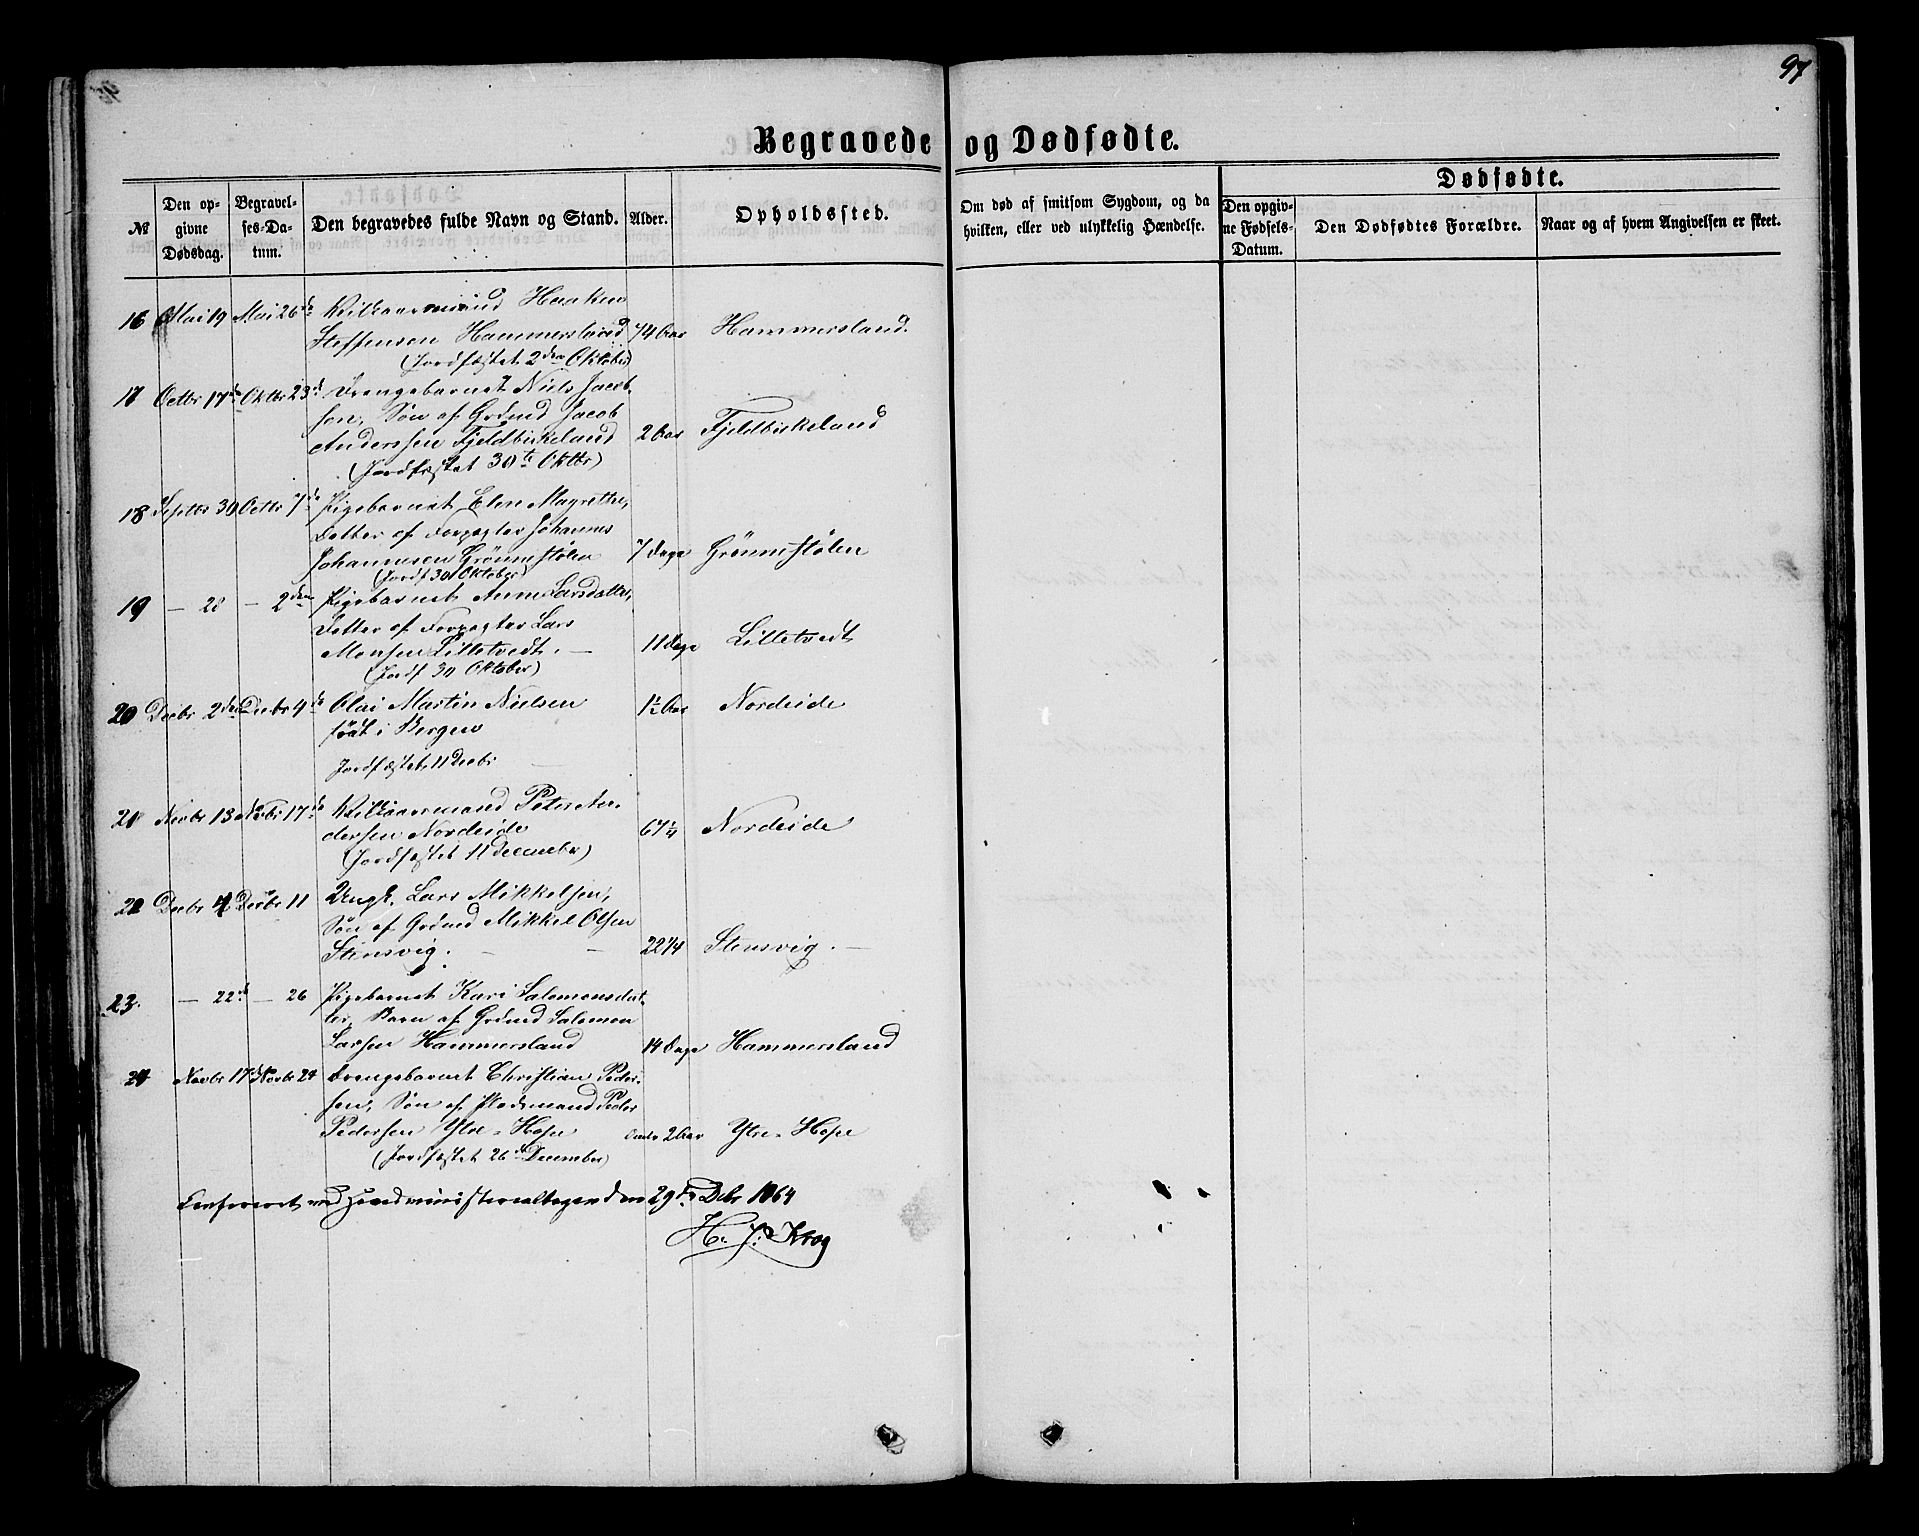 97
Begravede og Dødfødte.
Dødfødte.
№
Den opgivne Dødsdag.
Begravelses-Datum.
Den begravedes fulde Navn og Stand.
Alder.
Opholdssted.
Om død af smitsom Sygdom, og da hvilken, eller ved ulykkelig Hændelse.
Den opgivne Fødsels-Datum.
Den Dødfødtes Forældre.
Naar og af hvem Angivelsen er skeet.
16 Mai 19 Mai 26de Vilkaarsmand Haaken
Steffensen Hammersland 74 Aar Hammersland.
(Jordfæstet 2den Oktober)
17 Octbr 17de Oktbr 23de Drengebarnet Niels Jacob-
sen, Søn af Grdmd Jacob
Anderssen Fjeldbirkeland 2 Aar Fjeldbirkeland
(Jordfæstet 30te Oktbr)
18 Septbr 30 Octbr 7de Pigebarnet Elen Magrethe,
Datter af Forpagter Johannes
Johannesen Grønnestølen 7 Dage Grønnestølen
(Jordf 30 Oktober)
19 — 28 — 2den Pigebarnet Anne Larsdatter,
Datter af Forpagter Lars
Monsen Lilletvedt. — 11 Dage Lilletvedt
(Jordf 30 Oktober)
20 Decbr 2den Decbr 4de Olai Martin Nielsen 1½ Aar Nordeide
født i Bergen
Jordfæstet 11 Decbr —
21 Novbr 13 Novbr 17de Vilkaarsmand Peter An-
dersen Nordeide 67¼ Nordeide
(Jordfæstet 11 December)
22 Decbr 4 Decbr 11 Ungk. Lars Mikkelsen,
Søn af Grdmd Mikkel Olsen
Stensvig. — — 22¼ Stensvig. —
23. — 22de — 26 Pigebarnet Kari Salomonsdat-
ter, Barn af Grdmd Salomon
Larsen Hammersland 14 Dage Hammersland
24 Novbr 17de Novbr 24 Drengebarnet Christian Peder-
sen, Søn af Pladsmand Peder
Pedersen Ytre-Hope 2 Aar Ytre-Hope
(Jordfæstet 26de December)
Confereret med Hovedministerialbogen den 29de Debr 1864
H. J. Krog